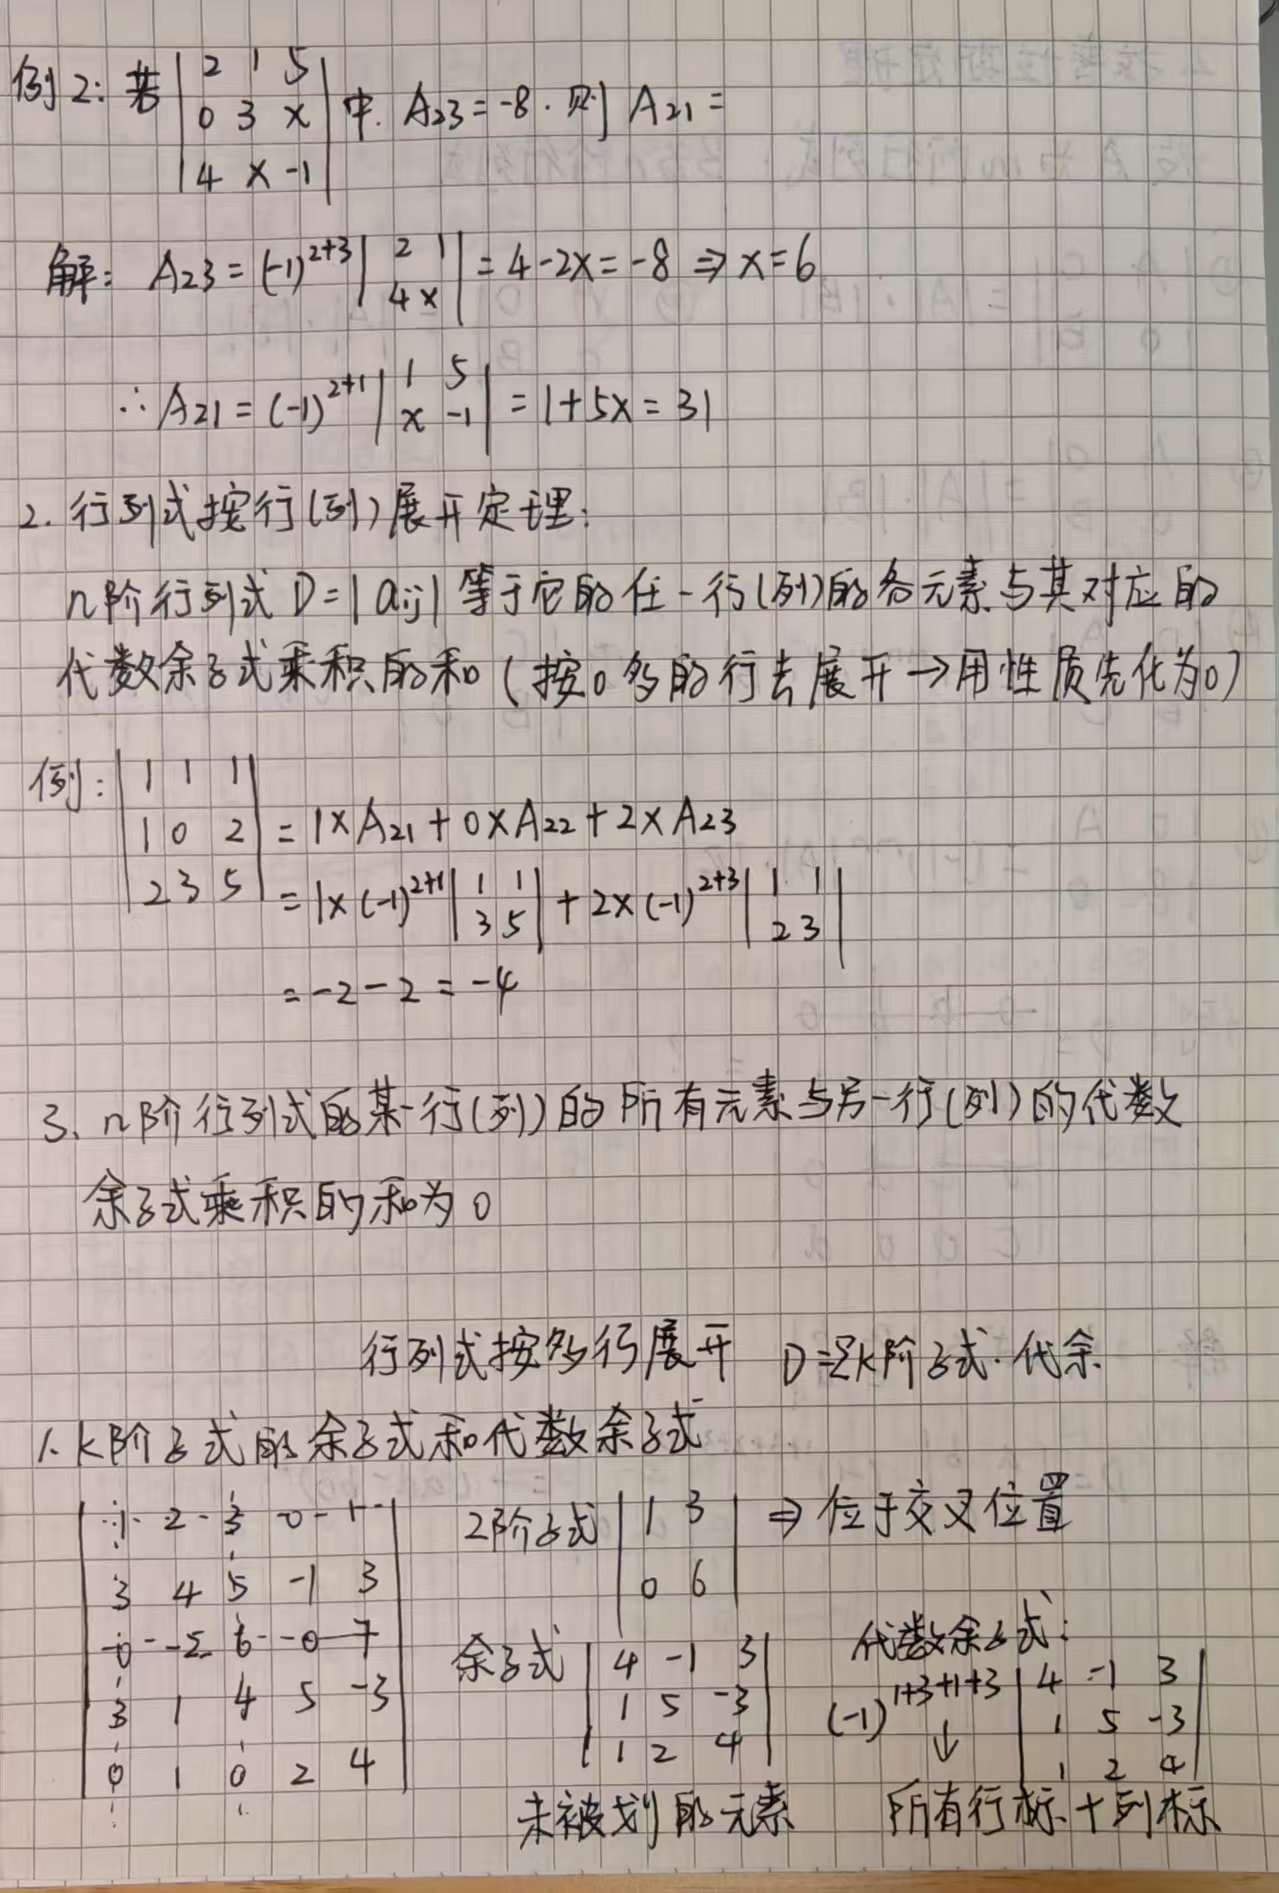 例2: 若 | 2 1 5 |
| 0 3 x | 中. A23=-8. 则 A21=
| 4 x -1 |
解: A23=(-1)^{2+3} | 2 1 | = 4-2x=-8 ⇒ x=6
| 4 x |
∴ A21=(-1)^{2+1} | 1 5 | = 1+5x=31
| x -1 |
2. 行列式按行(列)展开定理:
n阶行列式 D=|aij| 等于它的任一行(列)的各元素与其对应的
代数余子式乘积的和 (按0多的行去展开→用性质先化为0)
例: | 1 1 1 |
| 1 0 2 | = 1×A21+0×A22+2×A23
| 2 3 5 | = 1×(-1)^{2+1} | 1 1 | + 2×(-1)^{2+3} | 1 1 |
| 3 5 | | 2 3 |
=-2-2=-4
3. n阶行列式的某一行(列)的所有元素与另一行(列)的代数
余子式乘积的和为0
行列式按多行展开 D=Σk阶子式·代余
1. k阶子式的余子式和代数余子式
| 1 2 3 0 1 | 2阶子式 | 1 3 | ⇒ 位于交叉位置
| 3 4 5 -1 3 | | 0 6 |
| 0 -2 6 0 7 | 余子式 | 4 -1 3 | 代数余子式:
| 3 1 4 5 -3 | | 1 5 -3 | (-1)^{1+3+1+3} | 4 -1 3 |
| 0 1 0 2 4 | | 1 2 4 | ↓ | 1 5 -3 |
| 1 2 4 |
未被划的元素 所有行标+列标